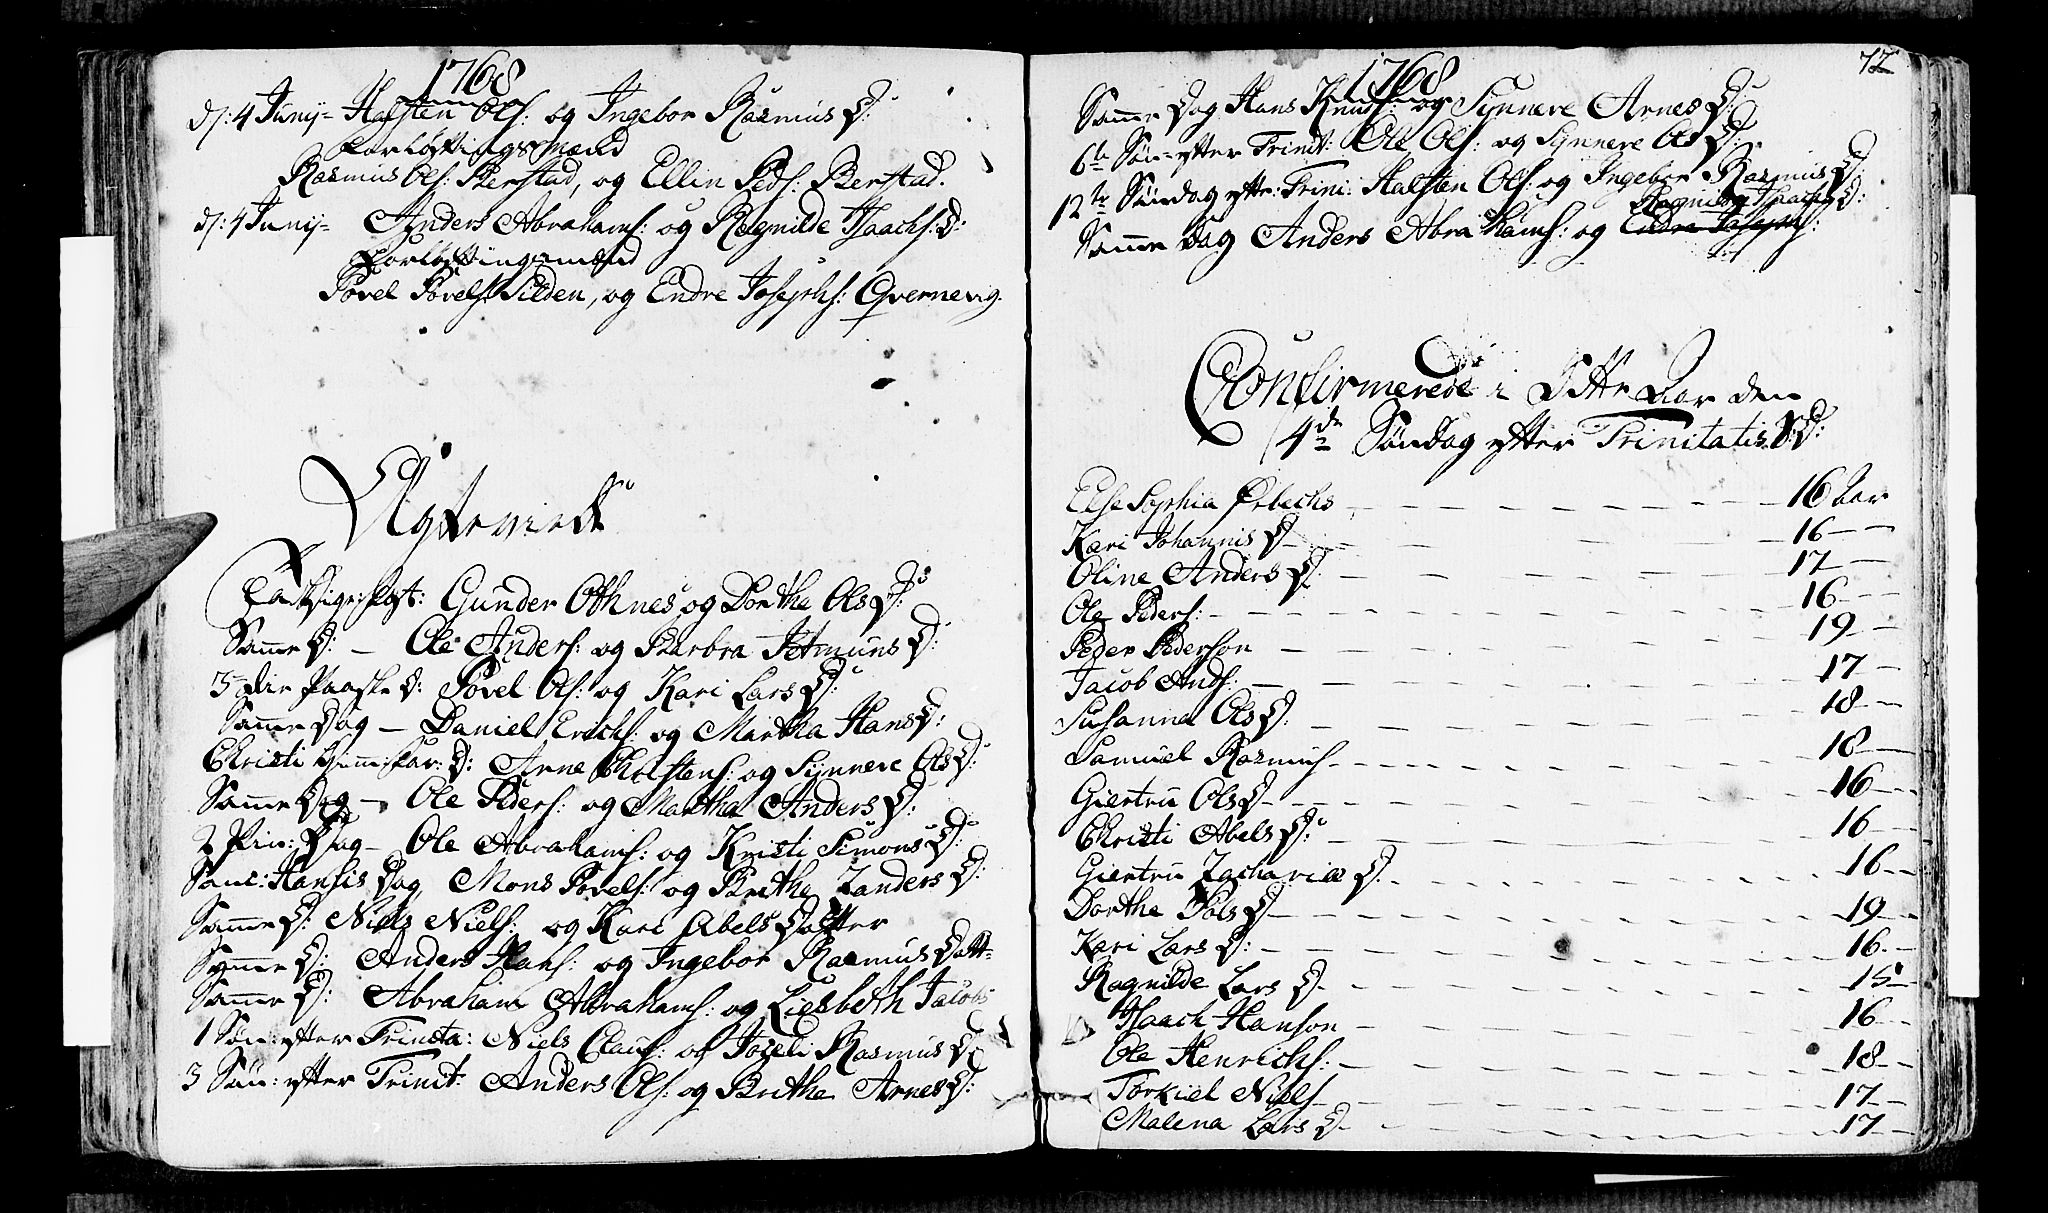 1768
d: 4 Junij - Halsten Ols: og Ingebor Rasmus D:
Forløftingsmænd
Rasmus Ols: Berstad, og Ellin Peds: Berstad.
d: 4 Junij - Anders Abrahams: og Ragnilde Isaachs D:
Forløftingsmænd
Povel Povels: Silden, og Endre Josephs: Qvernevig.
Ægteviede
Fastsig: Gunder Othnes og Dorthe Ols D:
Samme D: - Ole Anders: og Barbra Jetmuns D:
3die Paaske D: Povel Ols: og Kari Lars D:
Samme Dag - Daniel Erichs: og Martha Hans D:
Christi Himmelfar: D: Arne Cholstens: og Synnere Ols D:
Samme Dag - Ole Peders: og Martha Anders D:
2 Pin: Dag - Ole Abrahams: og Kristi Simons D:
Sanc: Hansis Dag, Mons Povels: og Brithe Zanders D:
Samme D: Niels Niels: og Kari Abels Datter
Samme D: Anders Hans: og Ingebor Rasmus Datt=
Samme D: Abraham Abrahams: og Liesbeth Jacobs
1 Søn: efter Trinita: Niels Claus: og Joseli Rasmus D:
3 Søn: efter Trinit: Anders Ols: og Brithe Arnes D:
72
1768
Samme Dag Hans Knuds: og Synnere Arnes D:
6te Søn= efter Trinit: Ole Ols: og Synnere Ols D:
12te Søndag efter: Trini: Halsten Ols: og Ingebor Rasmus D:
Ragnilde Isaachs D:
Samme Dag Anders Abrahams: og Endre Josephs:
Confirmerede i Dette Aar den
4de Søndag efter Trinitatis D:
Else Sophia Ørbechs - 16 Aar
Kari Johannis D - 16 -
Oline Anders D: - 17 -
Ole Peders: - 16 -
Peder Pederson - 19 -
Jacob Ands: - 17 -
Susanna Ols D: - 18 -
Samuel Rasmus - 18 -
Giertru Ols D - 16 -
Christi Abels D: - 16 -
Giertru Zacharia D - 16 -
Dorthe Pols D - 19 -
Kari Lars D: - 16 -
Ragnilde Lars D - 15 -
Isaach Hanson - 16 -
Ole Henrichs: - 18 -
Torkiel Niels - 17 -
Malena Lars D - 17 -